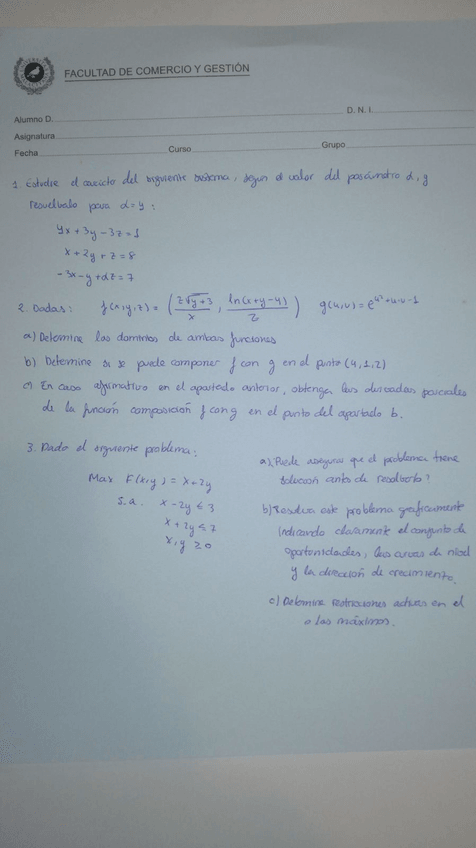 FACULTAD DE COMERCIO Y GESTIÓN
Alumno D. D. N. I.
Asignatura
Fecha Curso Grupo
1. Estudie el carácter del siguiente sistema, según el valor del parámetro α, y
resuélvalo para α=4:
4x + 3y - 3z = 1
x + 2y + z = 8
-3x - y + αz = 7
2. Dadas: f(x,y,z) = (z√y+3 / x , ln(x+y-4) / z) g(u,v) = e^u²+u·v-1
a) Determine los dominios de ambas funciones
b) Determine si se puede componer f con g en el punto (4,1,2)
c) En caso afirmativo en el apartado anterior, obtenga las derivadas parciales
de la función composición f con g en el punto del apartado b.
3. Dado el siguiente problema:
Max F(x,y) = x+2y
s.a. x - 2y ≤ 3
x + 2y ≤ 7
x,y ≥ 0
a) ¿Puede asegurar que el problema tiene
solución antes de resolverlo?
b) Resuelva este problema gráficamente
indicando claramente el conjunto de
oportunidades, las curvas de nivel
y la dirección de crecimiento.
c) Determine restricciones activas en el
o los máximos.